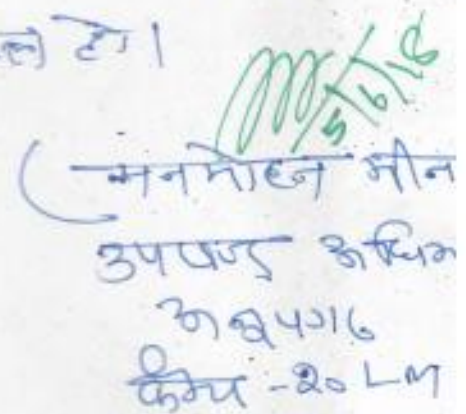 हो।
5/6/18
(मनमोहन मीन
उपखण्ड अधिक
अनूपगढ
कैम्प - 20 LM